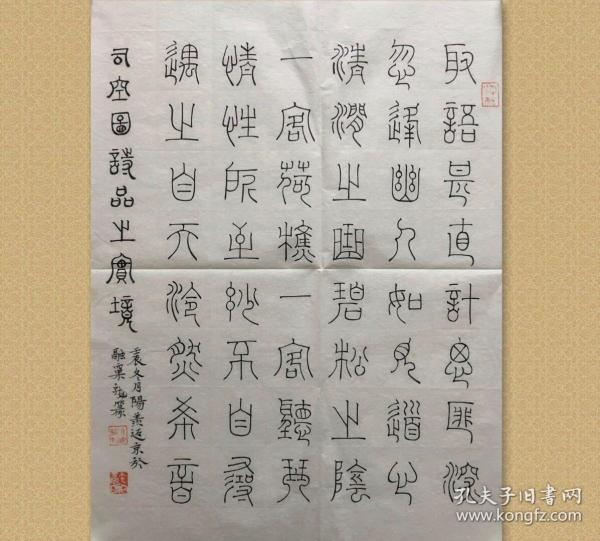 取語甚直計思匪深
忽逢幽人如見道心
清澗之曲碧松之陰
一客荷樵一客聽琴
情性所至妙不自尋
遇之自天泠然希音
司空圖詩品之實境
冬月陽羨京於
融巢篆
孔夫子旧书网
www.kongfz.com